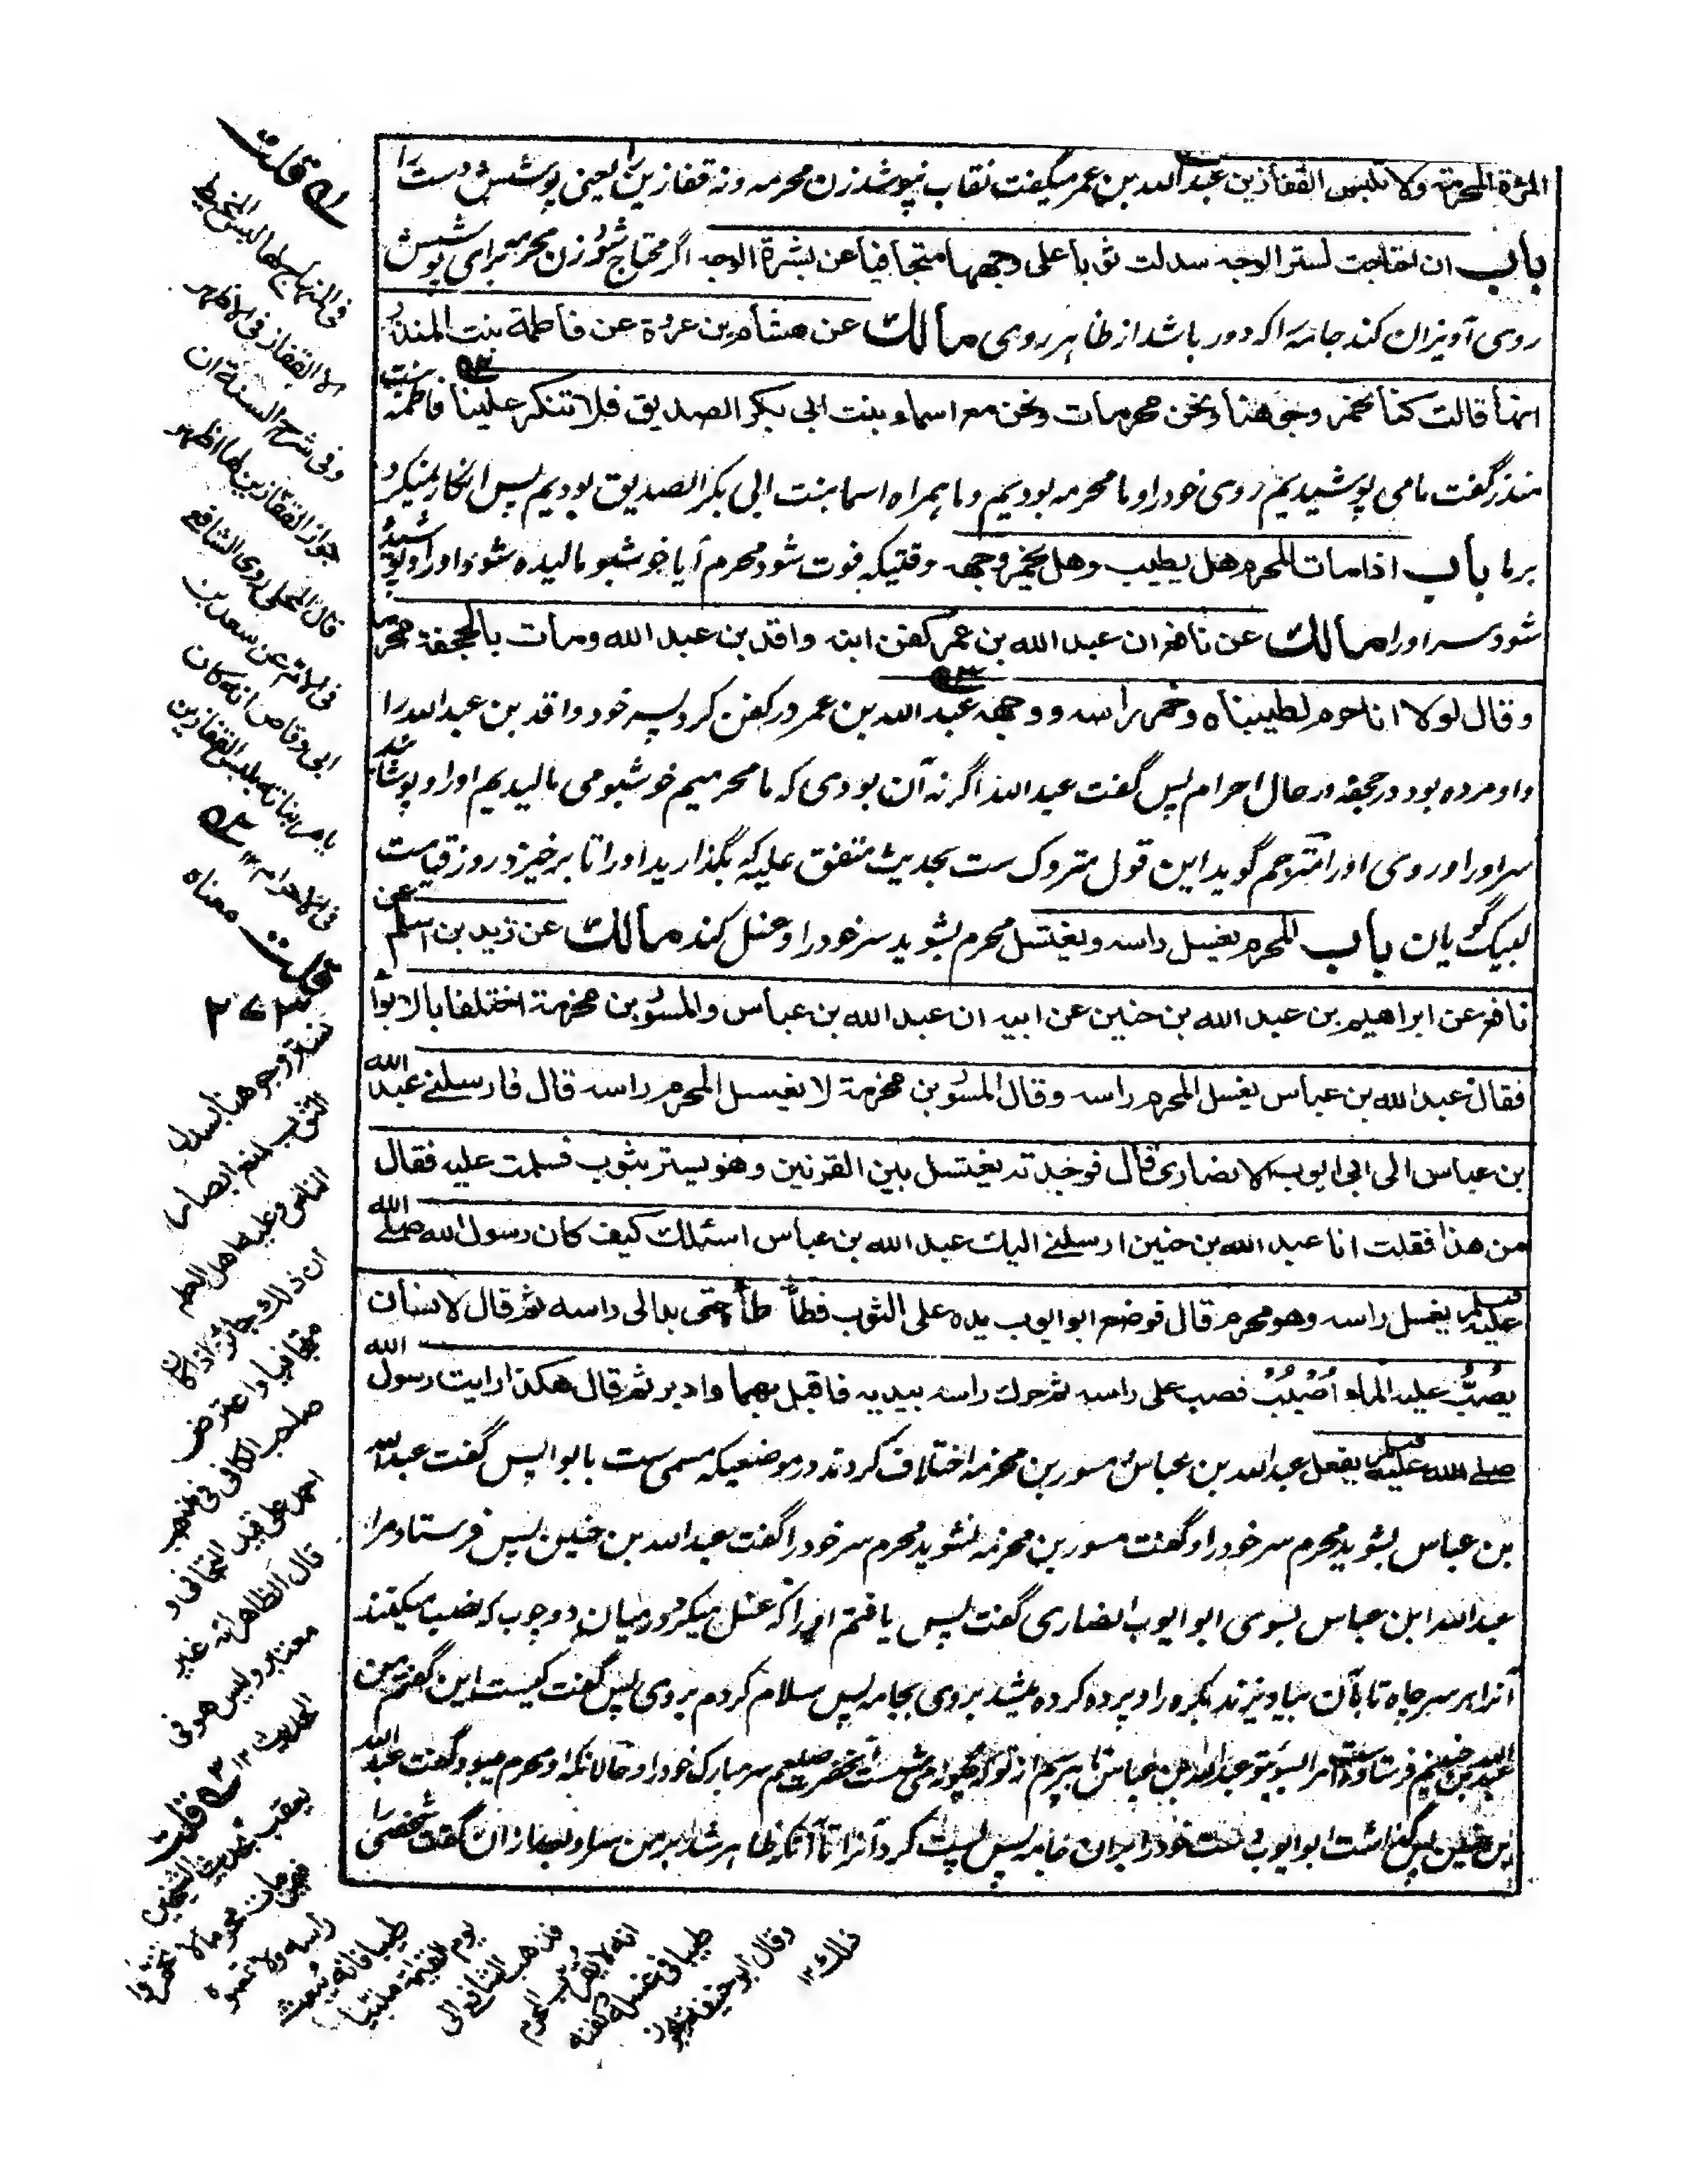 المرأة المحرمة ولا تلبس القفازين عبد الله بن عمر میگفت نقاب نپوشد زن محرمه ونه قفازین را یعنی پوشش دست را
باب ان احتاجت لستر الوجه سدلت ثوبا على وجهها متجافيا عن بشرة الوجه اگر محتاج شود زن محرمه برای پوشش
روی آویزان کند جامه را که دور باشد از ظاهر روی مالك عن هشام بن عروة عن فاطمة بنت المنذر
انها قالت كنا نخمر وجوهنا ونحن محرمات ونحن مع اسماء بنت ابي بكر الصديق فلا تنكر علينا فاطمه بنت
منذر گفت ما می پوشیدیم روی خود را و ما محرمه بودیم و ما همراه اسما بنت ابی بکر الصدیق بودیم پس انکار نمیکرد
بر ما باب اذا مات المحرم هل يطيب وهل يخمر وجهه وقتیکه فوت شود محرم آیا خوشبو مالیده شود او را و پوشیده
شود سر او را مالك عن نافع ان عبد الله بن عمر كفن ابنه واقد بن عبد الله ومات بالجحفة محرما
وقال لولا انا حرم لطيبناه وخمر راسه ووجهه عبد الله بن عمر در کفن کرد پسر خود واقد بن عبد الله را
و او مرده بود در جحفه در حال احرام پس گفت عبد الله اگر نه آن بودی که ما محرمیم خوشبو می مالیدیم او را و پوشانید
سر او را و روی او را مترجم گوید این قول متروک ست بحدیث متفق علیه که بگذارید او را تا بر خیزد روز قیامت
لبیک گویان باب المحرم يغسل راسه ويغتسل محرم بشوید سر خود را و غسل کند مالك عن زيد بن اسلم عن
نافع عن ابراهيم بن عبد الله بن حنين عن ابيه ان عبد الله بن عباس والمسور بن مخرمة اختلفا بالابوا
فقال عبد الله بن عباس يغسل المحرم راسه وقال المسور بن مخرمة لا يغسل المحرم راسه قال فارسلني عبد الله
بن عباس الى ابي ايوب الانصاري قال فوجدته يغتسل بين القرنين وهو يستر بثوب فسلمت عليه فقال
من هذا فقلت انا عبد الله بن حنين ارسلني اليك عبد الله بن عباس اسئلك كيف كان رسول الله صلى الله
عليه وسلم يغسل راسه وهو محرم قال فوضع ابو ايوب يده على الثوب فطأطأ حتى بدا لي راسه ثم قال لانسان
يصُبُّ عليه الماء اُصْبُبْ فصب على راسه ثم حرك راسه بيديه فاقبل بهما وادبر ثم قال هكذا رايت رسول الله
صلى الله عليه وسلم يفعل عبد الله بن عباس و مسور بن مخرمه اختلاف کردند در موضعیکه مسمی ست بابوا پس گفت عبد الله
بن عباس بشوید محرم سر خود را و گفت مسور بن مخرمه نشوید محرم سر خود را گفت عبد الله بن حنین پس فرستاد مرا
عبد الله ابن عباس بسوی ابو ایوب انصاری گفت پس یافتم او را که غسل میکرد در میان دو چوب که نصب میکنند
آنرا بر سر چاه تا بآن بیاویزند بکره را و پرده کرده میشد بروی بجامه پس سلام کردم بروی پس گفت کیست این گفتم من
عبد الله بن حنینم فرستاده است مرا بسوی تو عبد الله بن عباس تا بپرسم از تو که چگونه می شست آنحضرت صلعم سر مبارک خود را و حالانکه او محرم میبود گفت عبد الله
ابن حنین پس گذاشت ابو ایوب دست خود را بران جامه پس پست کرد آنرا تا آنکه ظاهر شد بر من سر او بعد ازان گفت شخصی را
قلت
في المنهاج لها لبس المخيط
الا القفاز في الاظهر
وفي شرح السنة ان
جواز القفازين لها اظهر
قال المحلي روى الشافعي
في الام عن سعد بن
ابي وقاص انه كان
يامر بناته بلبس القفازين
في الاحرام ١٢
قلت معناه
نستر وجوهنا بسدل
الثوب لمنع ابصار
الناس وعليه اهل العلم
ان ذلك جائز اذا كان
متجافيا واعترض
صاحب الكافي في مذهب
احمد على قيد التجافي و
قال الظاهر انه غير
معتبر وليس هو في
الحديث ١٢
قلت
يعقب بحديث الشيخين
فيمن مات محرما لا تخمروا
راسه ولا تمسوه
طيبا فانه يبعث
يوم القيمة ملبيا
فذهب الشافعي الى
انه لا يقرب المحرم
طيبا في غسله وكفنه
وقال ابو حنيفة يجوز
ذلك ١٢